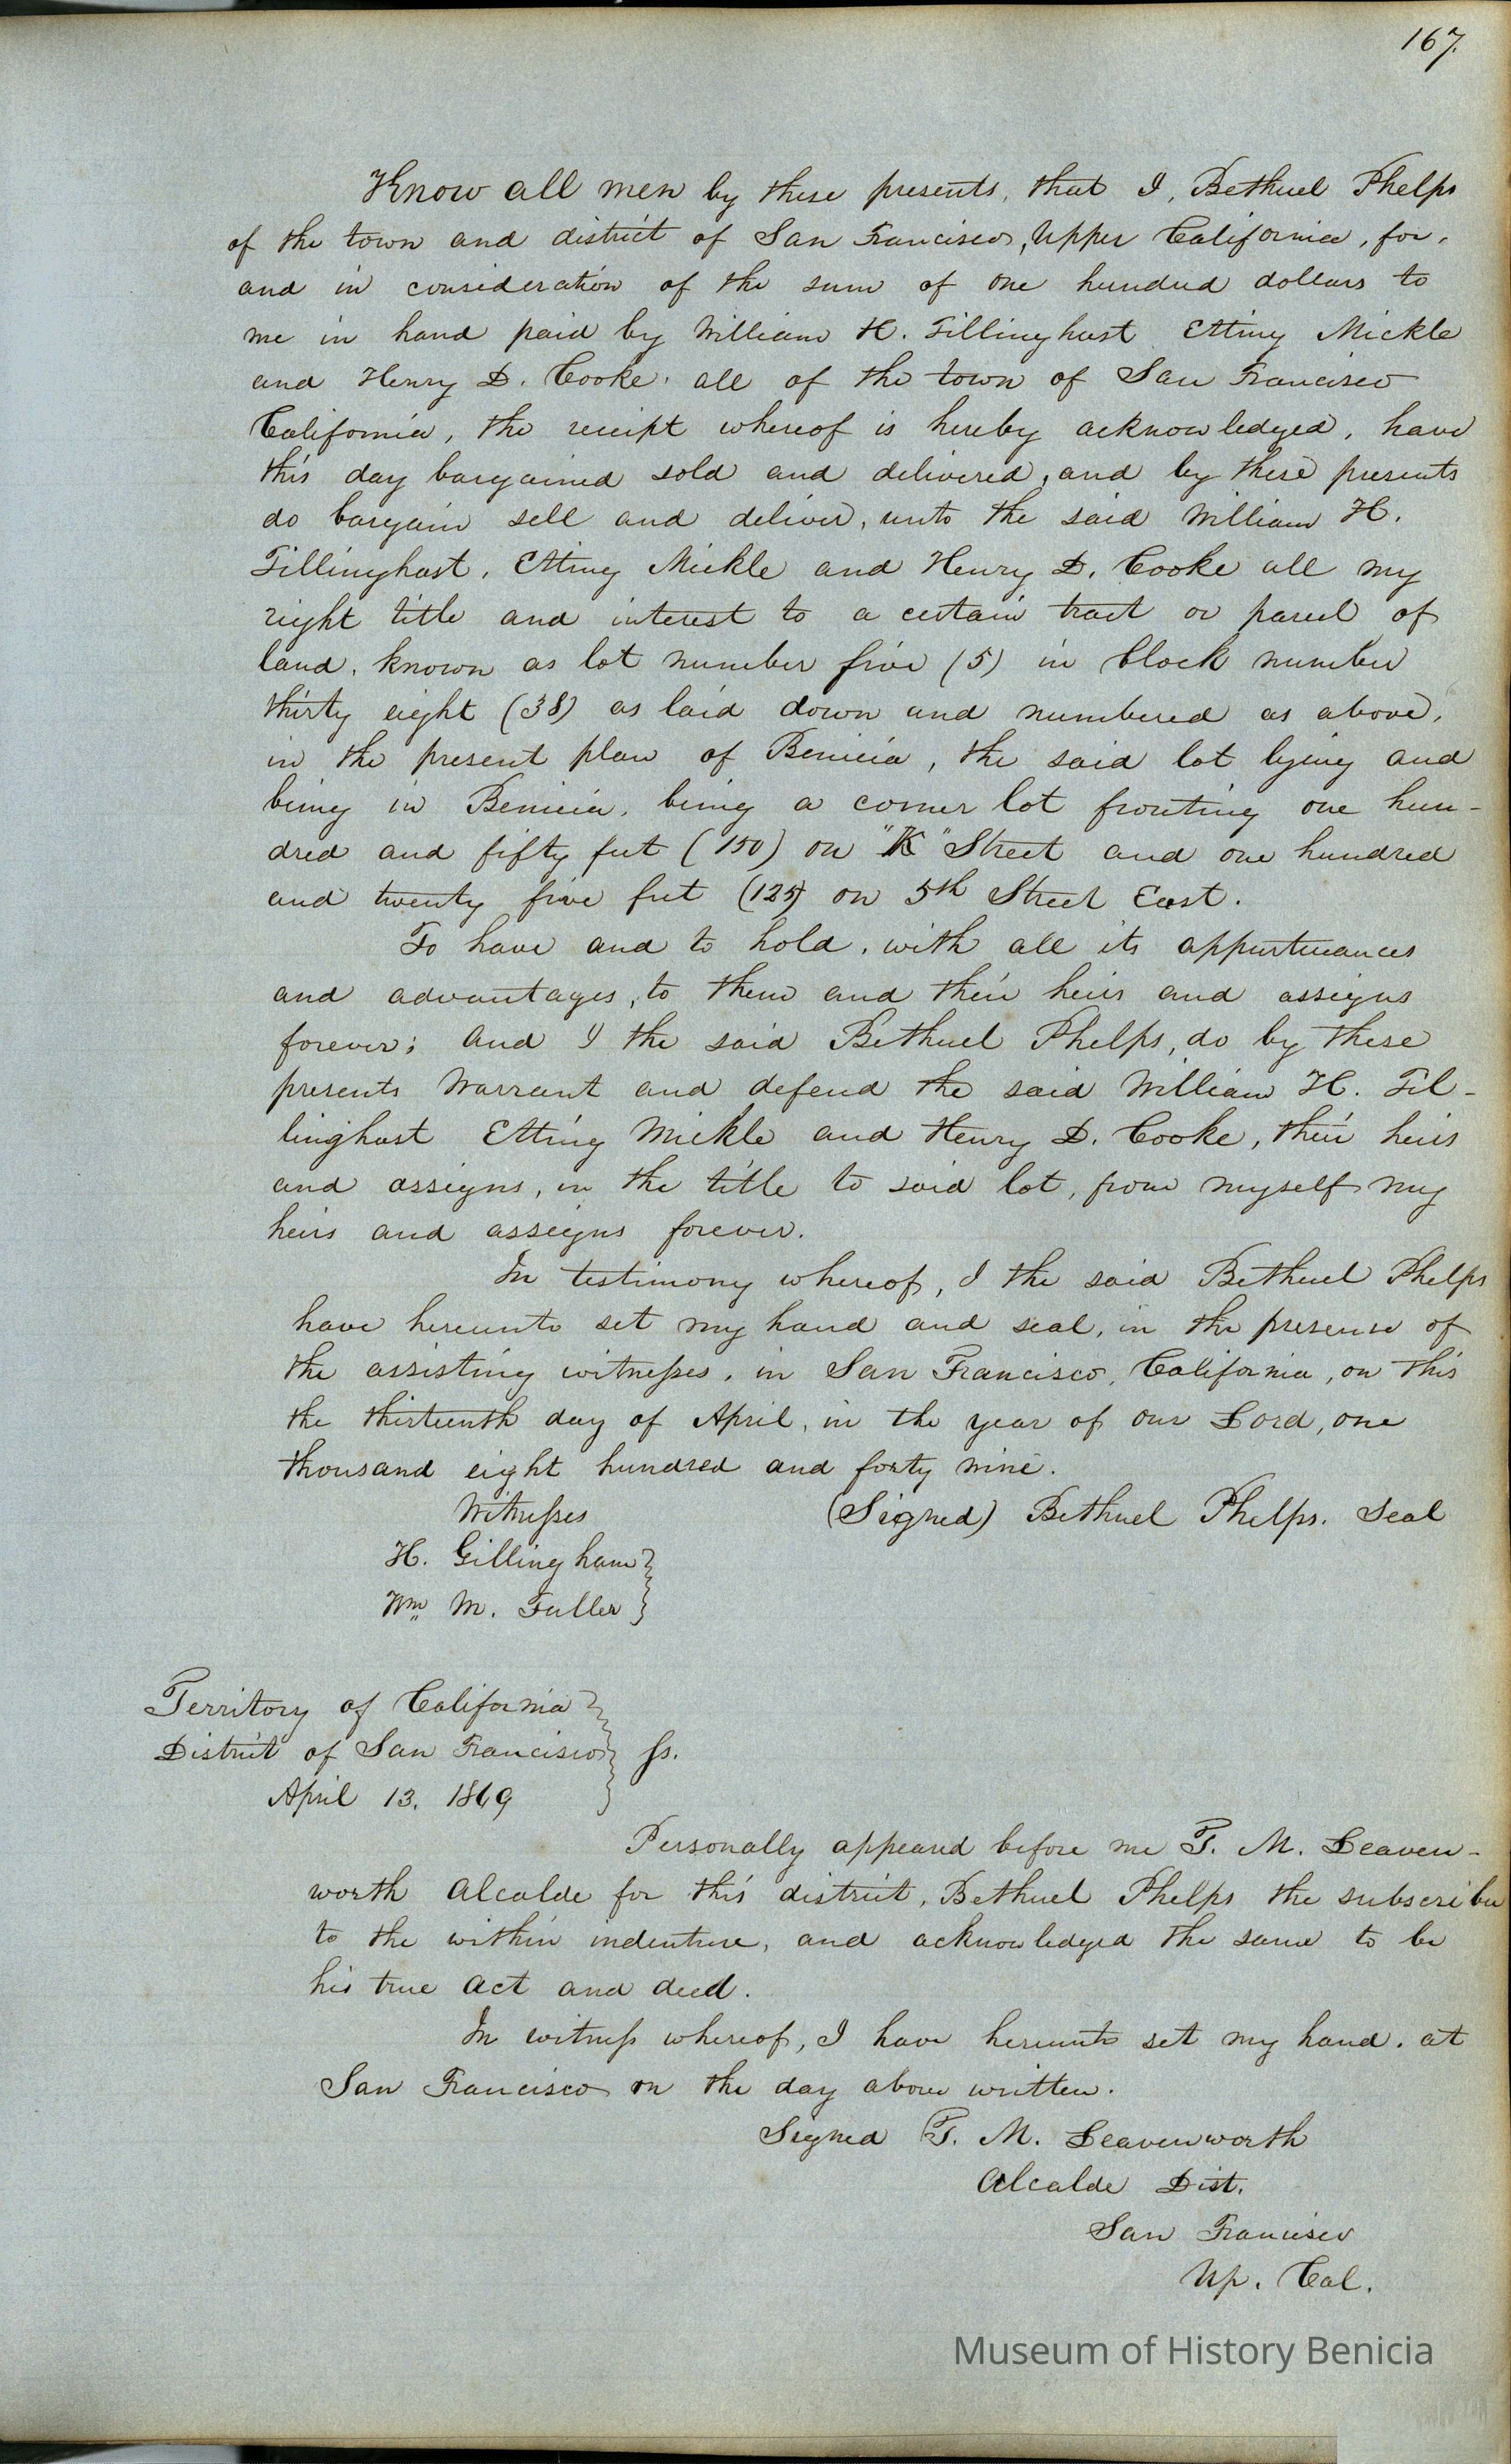 167.
Know all men by these presents, that I, Bethuel Phelps
of the town and district of San Francisco, Upper California, for,
and in consideration of the sum of one hundred dollars to
me in hand paid by William H. Tillinghast Etting Mickle
and Henry D. Cooke, all of the town of San Francisco
California, the receipt whereof is hereby acknowledged, have
this day bargained sold and delivered, and by these presents
do bargain sell and deliver, unto the said William H.
Tillinghast, Etting Mickle and Henry D. Cooke all my
right title and interest to a certain tract or parcel of
land, known as lot number five (5) in block number
thirty eight (38) as laid down and numbered as above,
in the present plan of Benicia, the said lot lying and
being in Benicia, being a corner lot fronting one hun-
dred and fifty feet (150) on "K" Street and one hundred
and twenty five feet (125) on 5th Street East.
To have and to hold, with all its appurtenances
and advantages, to them and their heirs and assigns
forever; and I the said Bethuel Phelps, do by these
presents Warrant and defend the said William H. Til-
linghast Etting Mickle and Henry D. Cooke, their heirs
and assigns, in the title to said lot, from myself my
heirs and assigns forever.
In testimony whereof, I the said Bethuel Phelps
have hereunto set my hand and seal, in the presence of
the assisting witnesses, in San Francisco, California, on this
the thirteenth day of April, in the year of our Lord, one
thousand eight hundred and forty nine.
Witnesses (Signed) Bethuel Phelps. Seal
H. Gillingham
Wm M. Fuller
Territory of California
District of San Francisco ss.
April 13. 1849
Personally appeared before me T. M. Leaven-
worth Alcalde for this district, Bethuel Phelps the subscriber
to the within indenture, and acknowledged the same to be
his true act and deed.
In witness whereof, I have hereunto set my hand, at
San Francisco on the day above written.
Signed T. M. Leavenworth
Alcalde Dist.
San Francisco
Up. Cal.
Museum of History Benicia